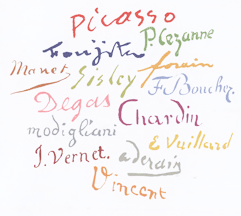 Picasso
P. Cezanne
Foujita
Manet Sisley forain
F. Boucher
Degas Chardin
modigliani
E Vuillard
J. Vernet. a derain
Vincent